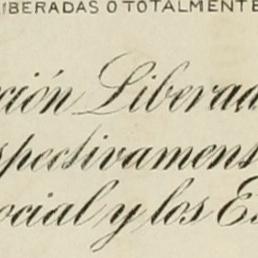 IBERADAS O TOTALMENTE
cción Liberad
spectivament
ocial y los Es